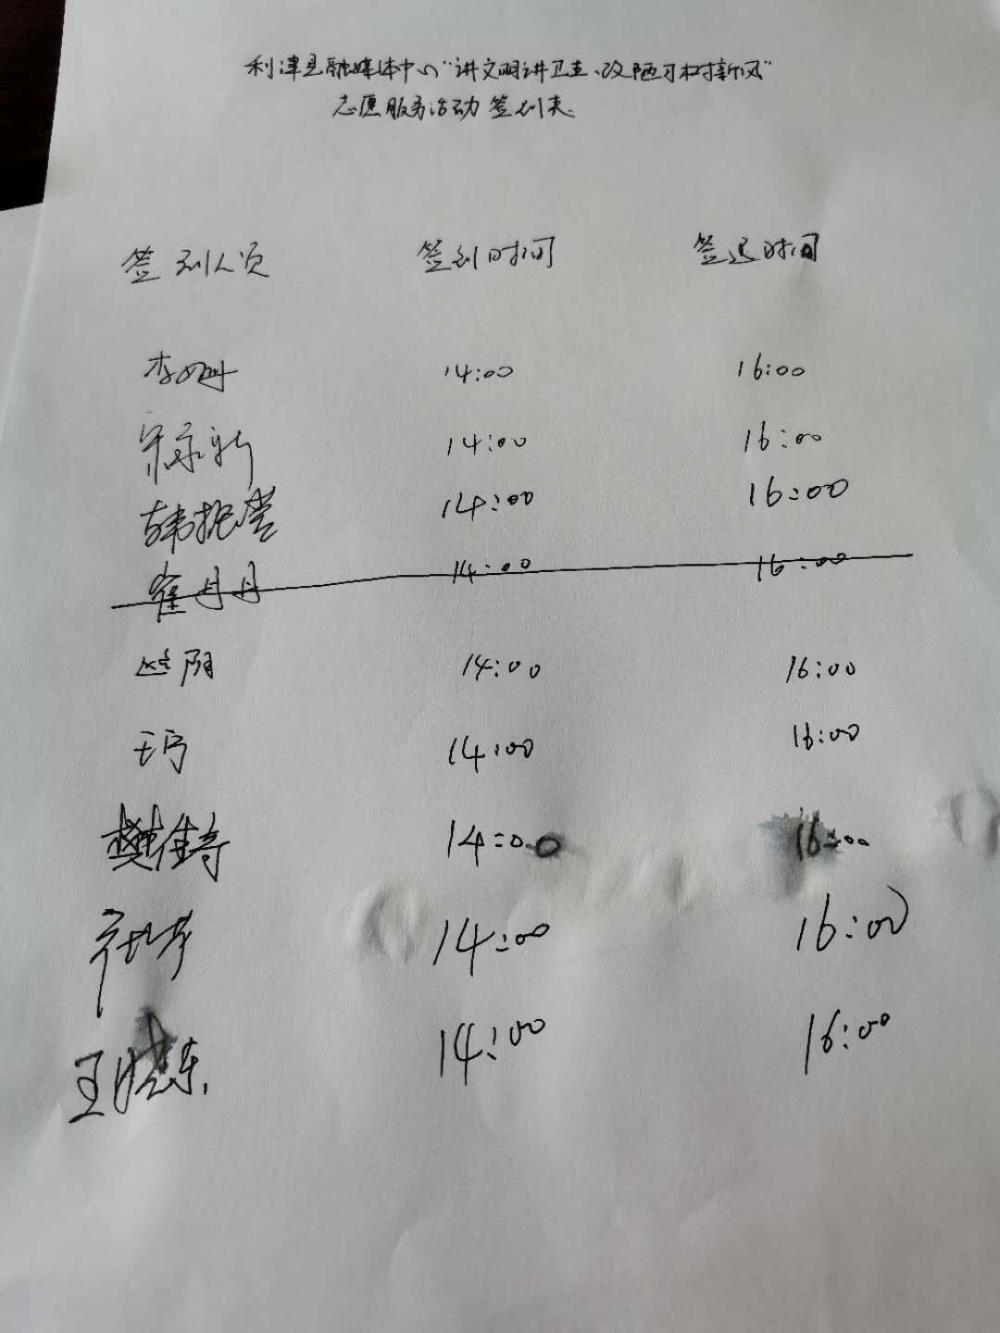 利津县融媒体中心“讲文明讲卫生、改陋习树新风”
志愿服务活动签到表
签到人员 签到时间 签退时间
李姗 14:00 16:00
14:00 16:00
韩振莹 14:00 16:00
崔丹丹 14:00 16:00
14:00 16:00
王丐 14:00 16:00
樊维奇 14:00 16:00
14:00 16:00
王晓东 14:00 16:00